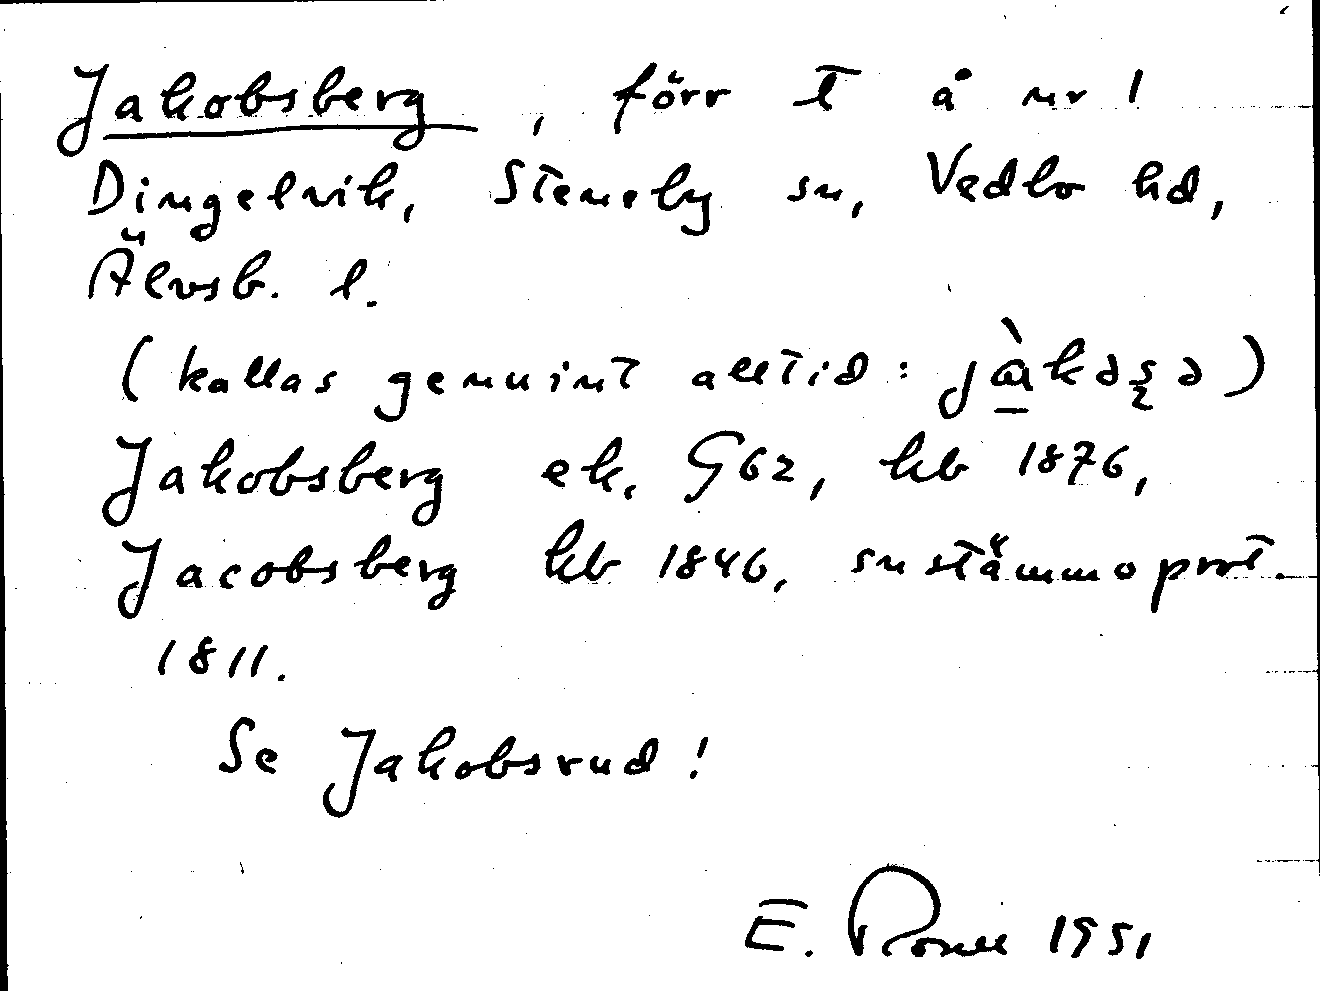 Jakobsberg, förr t å nr 1
Dingelvik, Steneby sn, Vedbo hd,
Älvsb. l.
(kallas genuint alltid:
Jakobsberg ek. G62, kb 1876,
Jacobsberg kb 1846, snstämmoprot.
1811.
Se Jakobsrud!
E. 1951